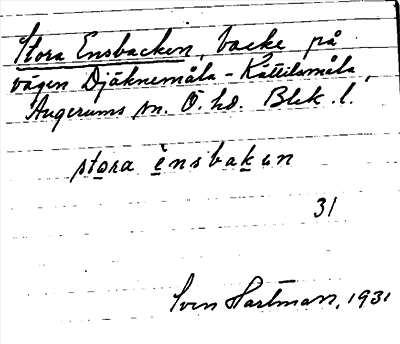 Stora Ensbacken, backe på
vägen Djäknemåla - Kättilsmåla,
Augerums sn. Ö. hd. Blek. l.
stora ensbakən
31
Sven Hartman, 1931